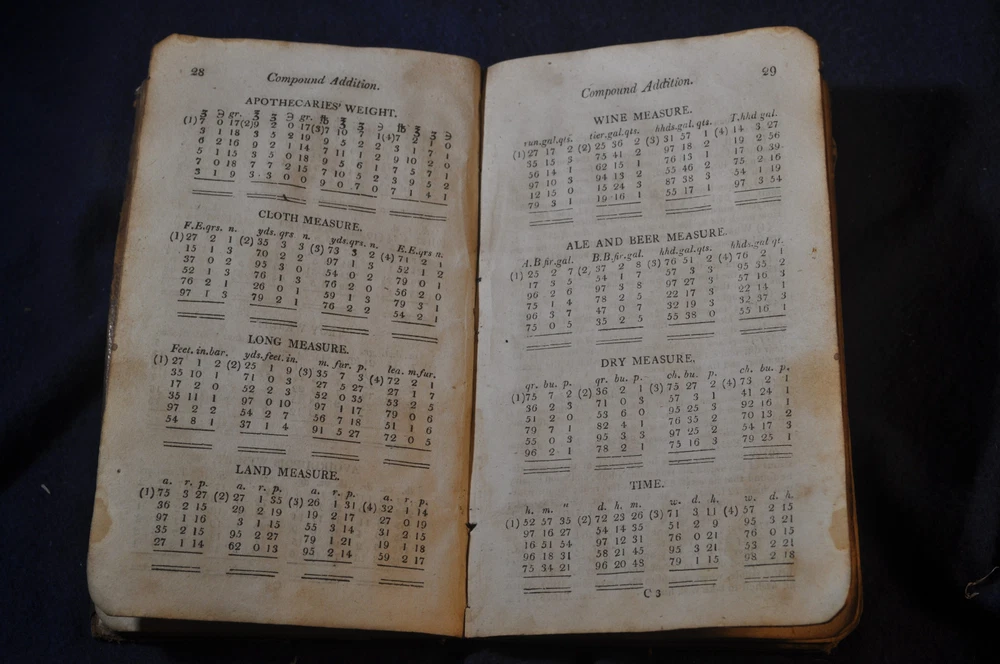 28
Compound Addition.
APOTHECARIES' WEIGHT.
℥ ℈ gr. ℥ ʒ ℈ gr. ℔ ℥ ʒ ℈ ℔ ℥ ʒ ℈
(1) 7 0 17 (2) 9 2 0 17 (3) 7 10 7 1 (4) 7 2 1 0
3 1 18 3 5 2 19 9 5 2 2 3 1 7 1
6 2 16 9 2 1 14 7 11 1 2 9 10 2 0
5 1 15 3 5 0 18 9 5 6 1 7 5 7 1
7 0 18 7 7 2 15 7 10 5 2 3 9 5 2
3 1 9 3 3 0 0 9 0 7 0 7 1 4 1
CLOTH MEASURE.
F.E.qrs. n. yds. qrs n. yds.qrs. n. E.E.qrs n.
(1) 27 2 1 (2) 35 3 3 (3) 73 3 2 (4) 71 2 1
15 1 3 70 2 2 97 1 3 52 1 2
37 0 2 95 3 0 54 0 2 79 0 1
52 1 3 76 1 3 76 2 0 56 2 0
76 2 1 26 0 1 59 1 3 79 3 1
97 1 3 79 2 1 76 2 2 54 2 1
LONG MEASURE.
Feet. in.bar. yds.feet.in. m. fur. p. lea. m.fur.
(1) 27 1 2 (2) 25 1 9 (3) 35 7 3 (4) 72 2 1
35 10 1 71 0 3 27 5 27 27 1 7
17 2 0 52 2 3 52 0 35 53 2 5
35 11 1 97 0 10 97 1 17 79 0 6
97 2 2 54 2 7 56 7 18 51 1 6
54 8 1 37 1 4 91 5 27 72 0 5
LAND MEASURE.
a. r. p. a. r. p. a. r. p. a. r. p.
(1) 75 3 27 (2) 27 1 35 (3) 26 1 31 (4) 32 1 14
36 2 15 29 2 19 19 2 17 27 0 19
97 1 16 3 1 15 55 3 14 31 2 15
35 2 15 95 2 27 79 1 21 19 1 18
27 1 14 62 0 13 95 2 14 59 2 17
29
Compound Addition.
WINE MEASURE.
run.gal.qts. tier.gal.qts. hhds.gal.qts. T.hhd gal.
(1) 27 17 2 (2) 25 36 2 (3) 31 57 1 (4) 14 3 27
35 15 3 75 41 2 97 18 2 19 2 56
56 14 1 62 15 1 76 13 1 17 0 39
97 10 3 94 13 2 55 46 2 75 2 16
12 15 0 15 24 3 87 38 3 54 1 19
79 3 1 19 16 1 55 17 1 97 3 54
ALE AND BEER MEASURE.
A.B fir.gal. B.B.fir.gal. hhd.gal.qts. hhds.gal qt.
(1) 25 2 7 (2) 37 2 8 (3) 76 51 2 (4) 76 2 1
17 3 5 54 1 7 57 3 3 95 35 2
96 2 6 97 3 8 97 27 3 57 16 3
75 1 4 78 2 5 22 17 3 22 14 1
96 3 7 47 0 7 32 19 3 32 37 3
75 0 5 35 2 5 55 38 0 55 16 1
DRY MEASURE.
qr. bu. p. qr. bu. p. ch. bu. p. ch. bu. p.
(1) 75 7 2 (2) 36 2 1 (3) 75 27 2 (4) 73 2 1
36 2 3 71 0 3 57 3 1 41 24 1
51 2 0 53 6 0 95 25 3 92 16 1
79 7 1 82 4 1 76 35 2 70 13 2
55 0 3 95 3 3 97 25 2 54 17 3
96 2 1 78 2 1 75 16 3 79 25 1
TIME.
h. m. " d. h. m. w. d. h. w. d. h.
(1) 52 57 35 (2) 72 23 26 (3) 71 3 11 (4) 57 2 15
97 16 27 54 14 35 51 2 9 95 3 21
16 51 54 97 12 31 76 0 21 76 0 15
96 18 31 58 21 45 95 3 21 53 2 21
75 34 21 96 20 48 79 1 15 98 2 18
C 3